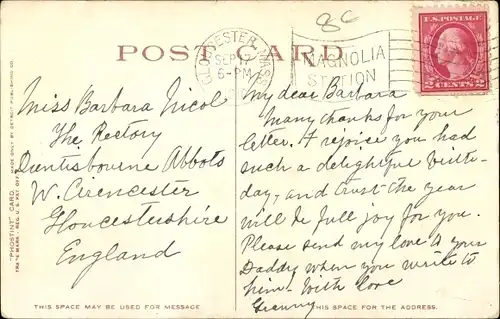 8c
POST CARD
GLOUCESTER MASS
SEP 17
6-PM
MAGNOLIA
STATION
U.S. POSTAGE
2 CENTS 2
Miss Barbara Nicol
The Rectory
Duntisbourne Abbots
W. Cirencester
Gloucestershire
England
My dear Barbara
Many thanks for your
letter. I rejoice you had
such a delightful birth-
day, and trust the year
will be full joy for you.
Please send my love to your
Daddy when you write to
him. With love
Granny
"PHOSTINT" CARD. MADE ONLY BY DETROIT PUBLISHING CO.
TRADE MARK. REG. U.S. PAT. OFF.
THIS SPACE MAY BE USED FOR MESSAGE
THIS SPACE FOR THE ADDRESS.